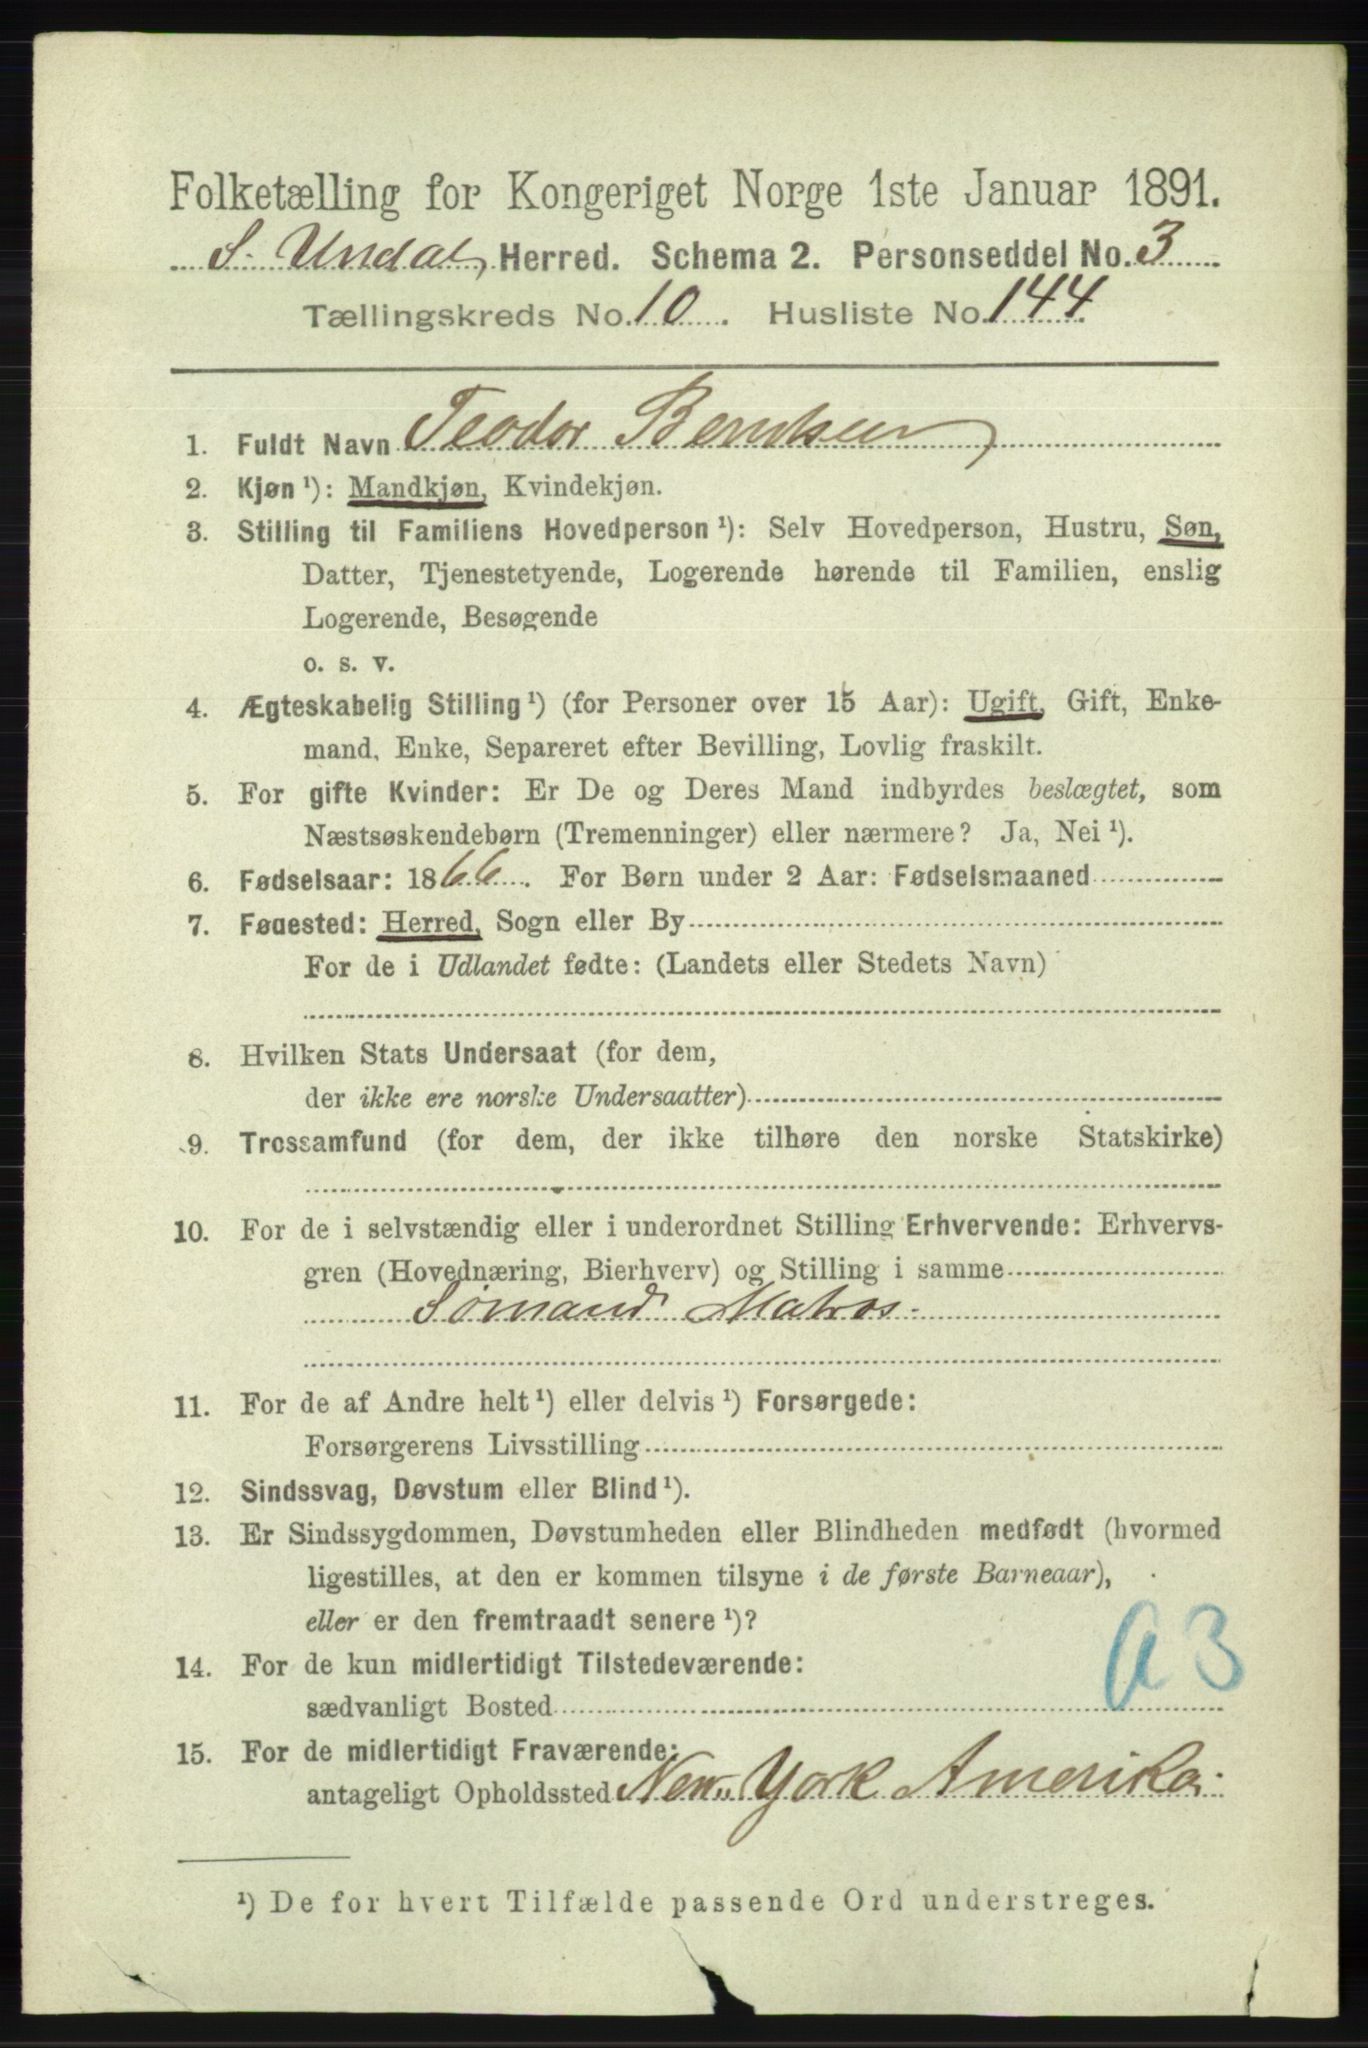 Folketælling for Kongeriget Norge 1ste Januar 1891.
S. Undal Herred. Schema 2. Personseddel No. 3
Tællingskreds No. 10. Husliste No. 144
1. Fuldt Navn Teodor Berntsen
2. Kjøn ¹): Mandkjøn, Kvindekjøn.
3. Stilling til Familiens Hovedperson ¹): Selv Hovedperson, Hustru, Søn,
Datter, Tjenestetyende, Logerende hørende til Familien, enslig
Logerende, Besøgende
o. s. v.
4. Ægteskabelig Stilling ¹) (for Personer over 15 Aar): Ugift, Gift, Enke-
mand, Enke, Separeret efter Bevilling, Lovlig fraskilt.
5. For gifte Kvinder: Er De og Deres Mand indbyrdes beslægtet, som
Næstsøskendebørn (Tremenninger) eller nærmere? Ja, Nei ¹).
6. Fødselsaar: 1866. For Børn under 2 Aar: Fødselsmaaned
7. Fødested: Herred, Sogn eller By
For de i Udlandet fødte: (Landets eller Stedets Navn)
8. Hvilken Stats Undersaat (for dem,
der ikke ere norske Undersaatter)
9. Trossamfund (for dem, der ikke tilhøre den norske Statskirke)
10. For de i selvstændig eller i underordnet Stilling Erhvervende: Erhvervs-
gren (Hovednæring, Bierhverv) og Stilling i samme
Sømand Matros.
11. For de af Andre helt ¹) eller delvis ¹) Forsørgede:
Forsørgerens Livsstilling
12. Sindssvag, Døvstum eller Blind ¹).
13. Er Sindssygdommen, Døvstumheden eller Blindheden medfødt (hvormed
ligestilles, at den er kommen tilsyne i de første Barneaar),
eller er den fremtraadt senere ¹)?
a3
14. For de kun midlertidigt Tilstedeværende:
sædvanligt Bosted
15. For de midlertidigt Fraværende:
antageligt Opholdssted New York Amerika.
¹) De for hvert Tilfælde passende Ord understreges.